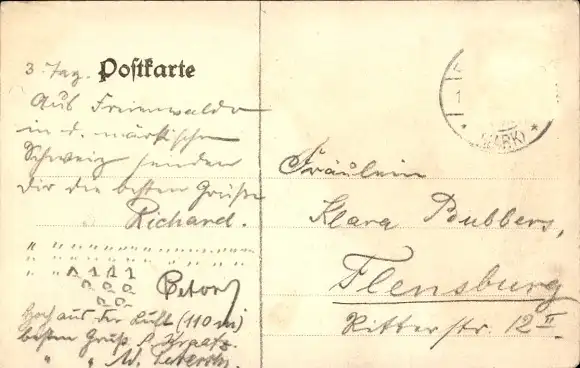 3. Tag. Postkarte
Aus Freienwalde
in d. märkischen
Schweiz senden
Dir die besten Grüße
Richard.
" " " " " " " " "
" " " " " " " " "
" " 1 1 1
Hoch aus der Luft (110 m)
besten Gruß
" "
MARK) *
Fräulein
Klara Bubbers,
Flensburg
Ritterstr. 12 II